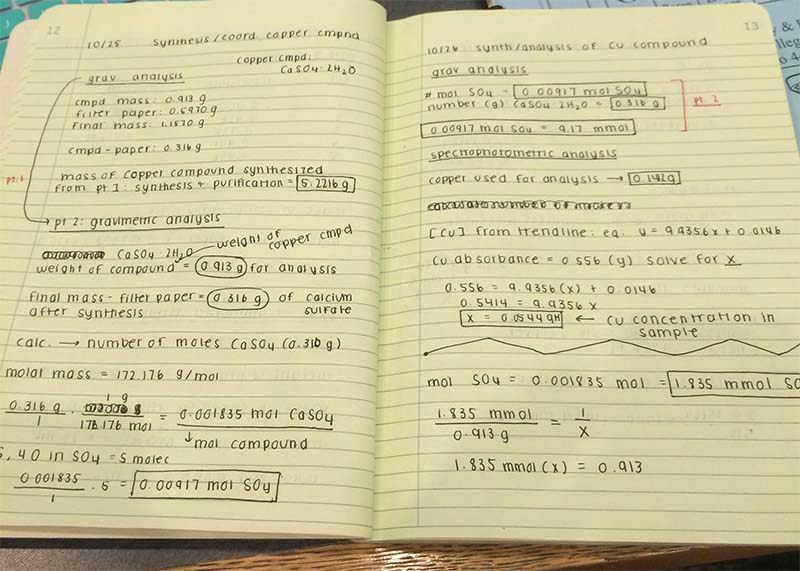 12
10/25 Synthesis/coord copper cmpnd
copper cmpd:
CaSO4·2H2O
grav analysis
cmpd mass: 0.913 g
filter paper: 0.8970 g
final mass: 1.1870 g
cmpd-paper: 0.316 g
pt. 1
mass of copper compound synthesized
from pt 1: synthesis + purification = 5.2216 g
pt 2: gravimetric analysis
CaSO4 2H2O
weight of
copper cmpd
weight of compound = 0.913 g for analysis
final mass - filter paper = 0.316 g of calcium
after synthesis sulfate
calc. → number of moles CaSO4 (0.316 g)
molar mass = 172.176 g/mol
0.316 g / 1 · 1 g / 176.176 mol = 0.001835 mol CaSO4
↓mol compound
S, 4O in SO4 = 5 molec
0.001835 / 1 · 5 = 0.00917 mol SO4
13
10/26 synth/analysis of Cu compound
grav analysis
# mol SO4 = 0.00917 mol SO4
number (g) CaSO4 2H2O = 0.316 g
pt. 2
0.00917 mol SO4 = 9.17 mmol
spectrophotometric analysis
copper used for analysis → 0.142 g
[Cu] from trendline: eq: y = 9.9356x + 0.0146
Cu absorbance = 0.556 (y) solve for x
0.556 = 9.9356(x) + 0.0146
0.5414 = 9.9356x
x = 0.0544 9M ← Cu concentration in
sample
mol SO4 = 0.001835 mol = 1.835 mmol SO
1.835 mmol / 0.913 g = 1 / x
1.835 mmol (x) = 0.913